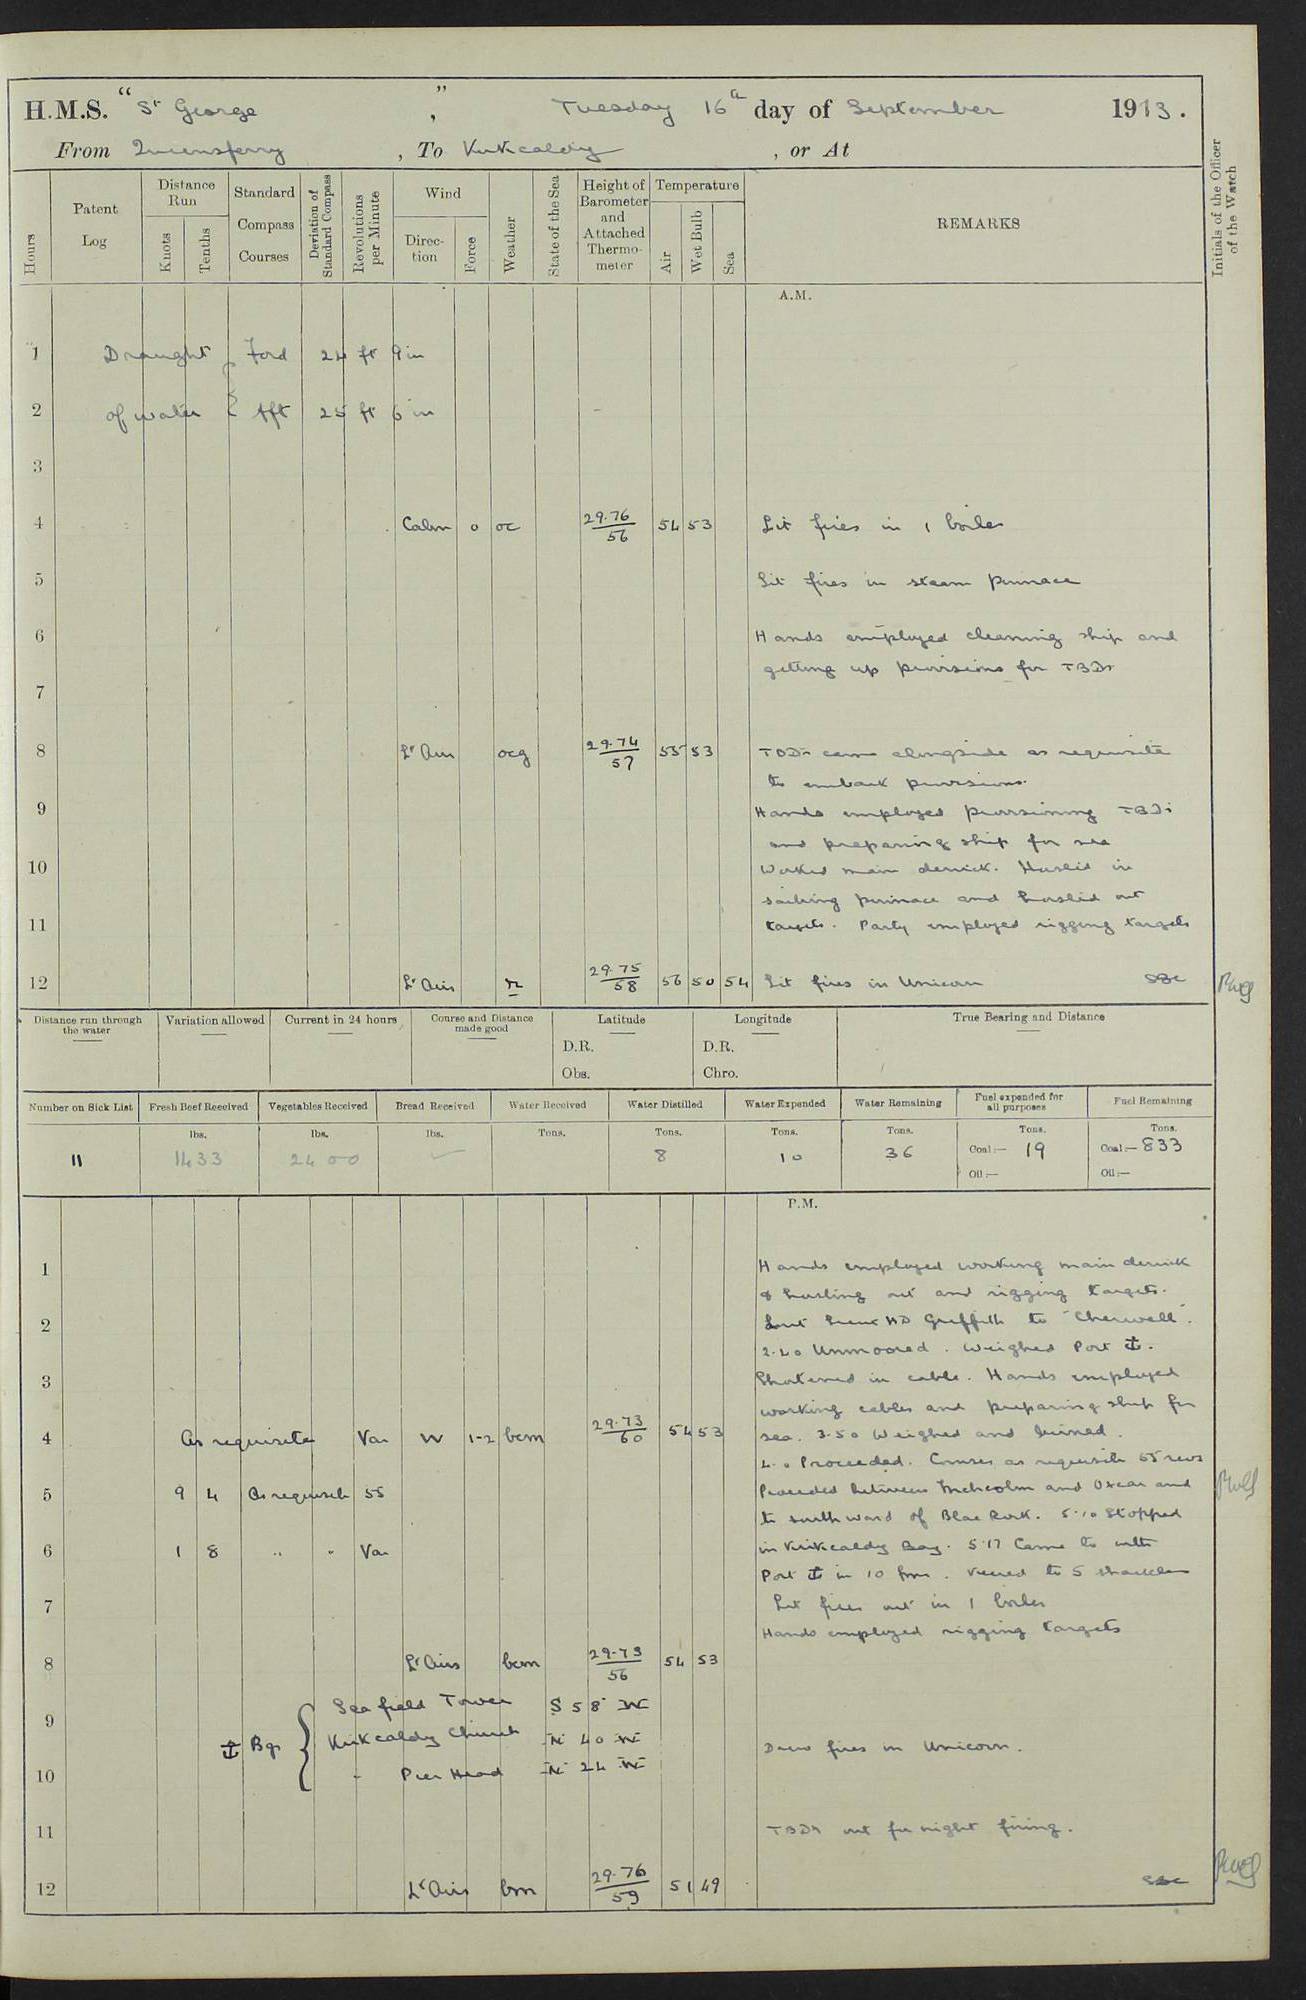 H.M.S. "St George", Tuesday 16th day of September 1913.
From Queensferry, To Kirkcaldy, or At
Hours
Patent Log
Distance Run
Knots
Tenths
Standard Compass Courses
Deviation of Standard Compass
Revolutions per Minute
Wind
Direction
Force
Weather
State of the Sea
Height of Barometer and Attached Thermometer
Temperature
Air
Wet Bulb
Sea
REMARKS
Initials of the Officer of the Watch
A.M.
1 Draught { Ford 24 ft 9 in
2 of water { Aft 25 ft 6 in
3
4 Calm 0 oc 29.76/56 54 53 Lit fires in 1 boiler
5 Lit fires in steam pinnace
6 Hands employed cleaning ship and
getting up provisions for TBDs
7
8 Lt Airs ocg 29.74/57 55 53 TBDs came alongside as requisite
to embark provisions.
9 Hands employed provisioning TBDs
and preparing ship for sea
10 Worked main derrick. Hoisted in
sailing pinnace and hoisted out
11 targets. Party employed rigging targets
12 Lt Airs r 29.75/58 56 50 54 Lit fires in Unicorn
Distance run through the water
Variation allowed
Current in 24 hours
Course and Distance made good
Latitude
D.R.
Obs.
Longitude
D.R.
Chro.
True Bearing and Distance
Number on Sick List
Fresh Beef Received
Vegetables Received
Bread Received
Water Received
Water Distilled
Water Expended
Water Remaining
Fuel expended for all purposes
Fuel Remaining
lbs. lbs. lbs. Tons. Tons. Tons. Tons. Tons. Tons.
11 1433 2400 8 10 36 Coal:— 19 Coal:— 833
Oil:— Oil:—
P.M.
1 Hands employed working main derrick
& hoisting out and rigging targets.
2 Lent Lieut HD Griffith to "Cherwell".
2.20 Unmoored. Weighed Port ⚓.
3 Shortened in cable. Hands employed
working cables and preparing ship for
4 As requisite Var W 1-2 bcm 29.73/60 54 53 sea. 3.50 Weighed and turned.
4.0 Proceeded. Courses as requisite 55 revs
5 9 4 As requisite 55 Proceeded between Inchcolm and Oxcar and
to southward of Blae Rock. 5.10 Stopped
6 1 8 " " Var in Kirkcaldy Bay. 5.17 Came to with
Port ⚓ in 10 fms. Veered to 5 shackles
7 Let fires out in 1 boiler
Hands employed rigging targets
8 Lt Airs bcm 29.73/56 54 53
9 ⚓ Bgs { Seafield Tower S 58 W
Kirkcaldy Church N 40 W
Drew fires in Unicorn.
10 " Pier Head N 24 W
11 TBDs out for night firing.
12 Lt Airs bm 29.76/59 51 49